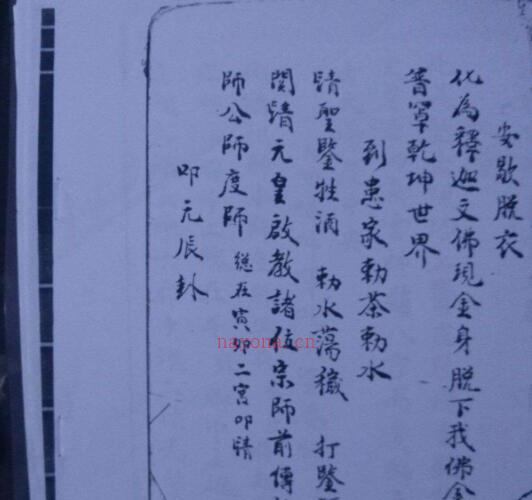 安歇脱衣
化為釋迦文佛現金身脱下我佛金
普罩乾坤世界
到患家勅茶勅水
請聖鑒牲酒 勅水蕩穢 打鑒
関請元皇啟教諸位宗師前傳
師公師度師 總在寅卯二宮叩請
叩元辰卦
nayona.cn